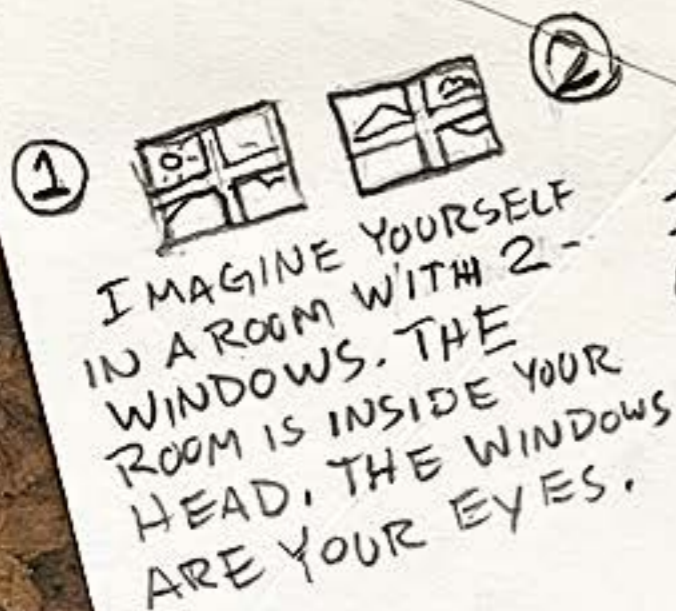 1
2
IMAGINE YOURSELF
IN A ROOM WITH 2-
WINDOWS. THE
ROOM IS INSIDE YOUR
HEAD. THE WINDOWS
ARE YOUR EYES.